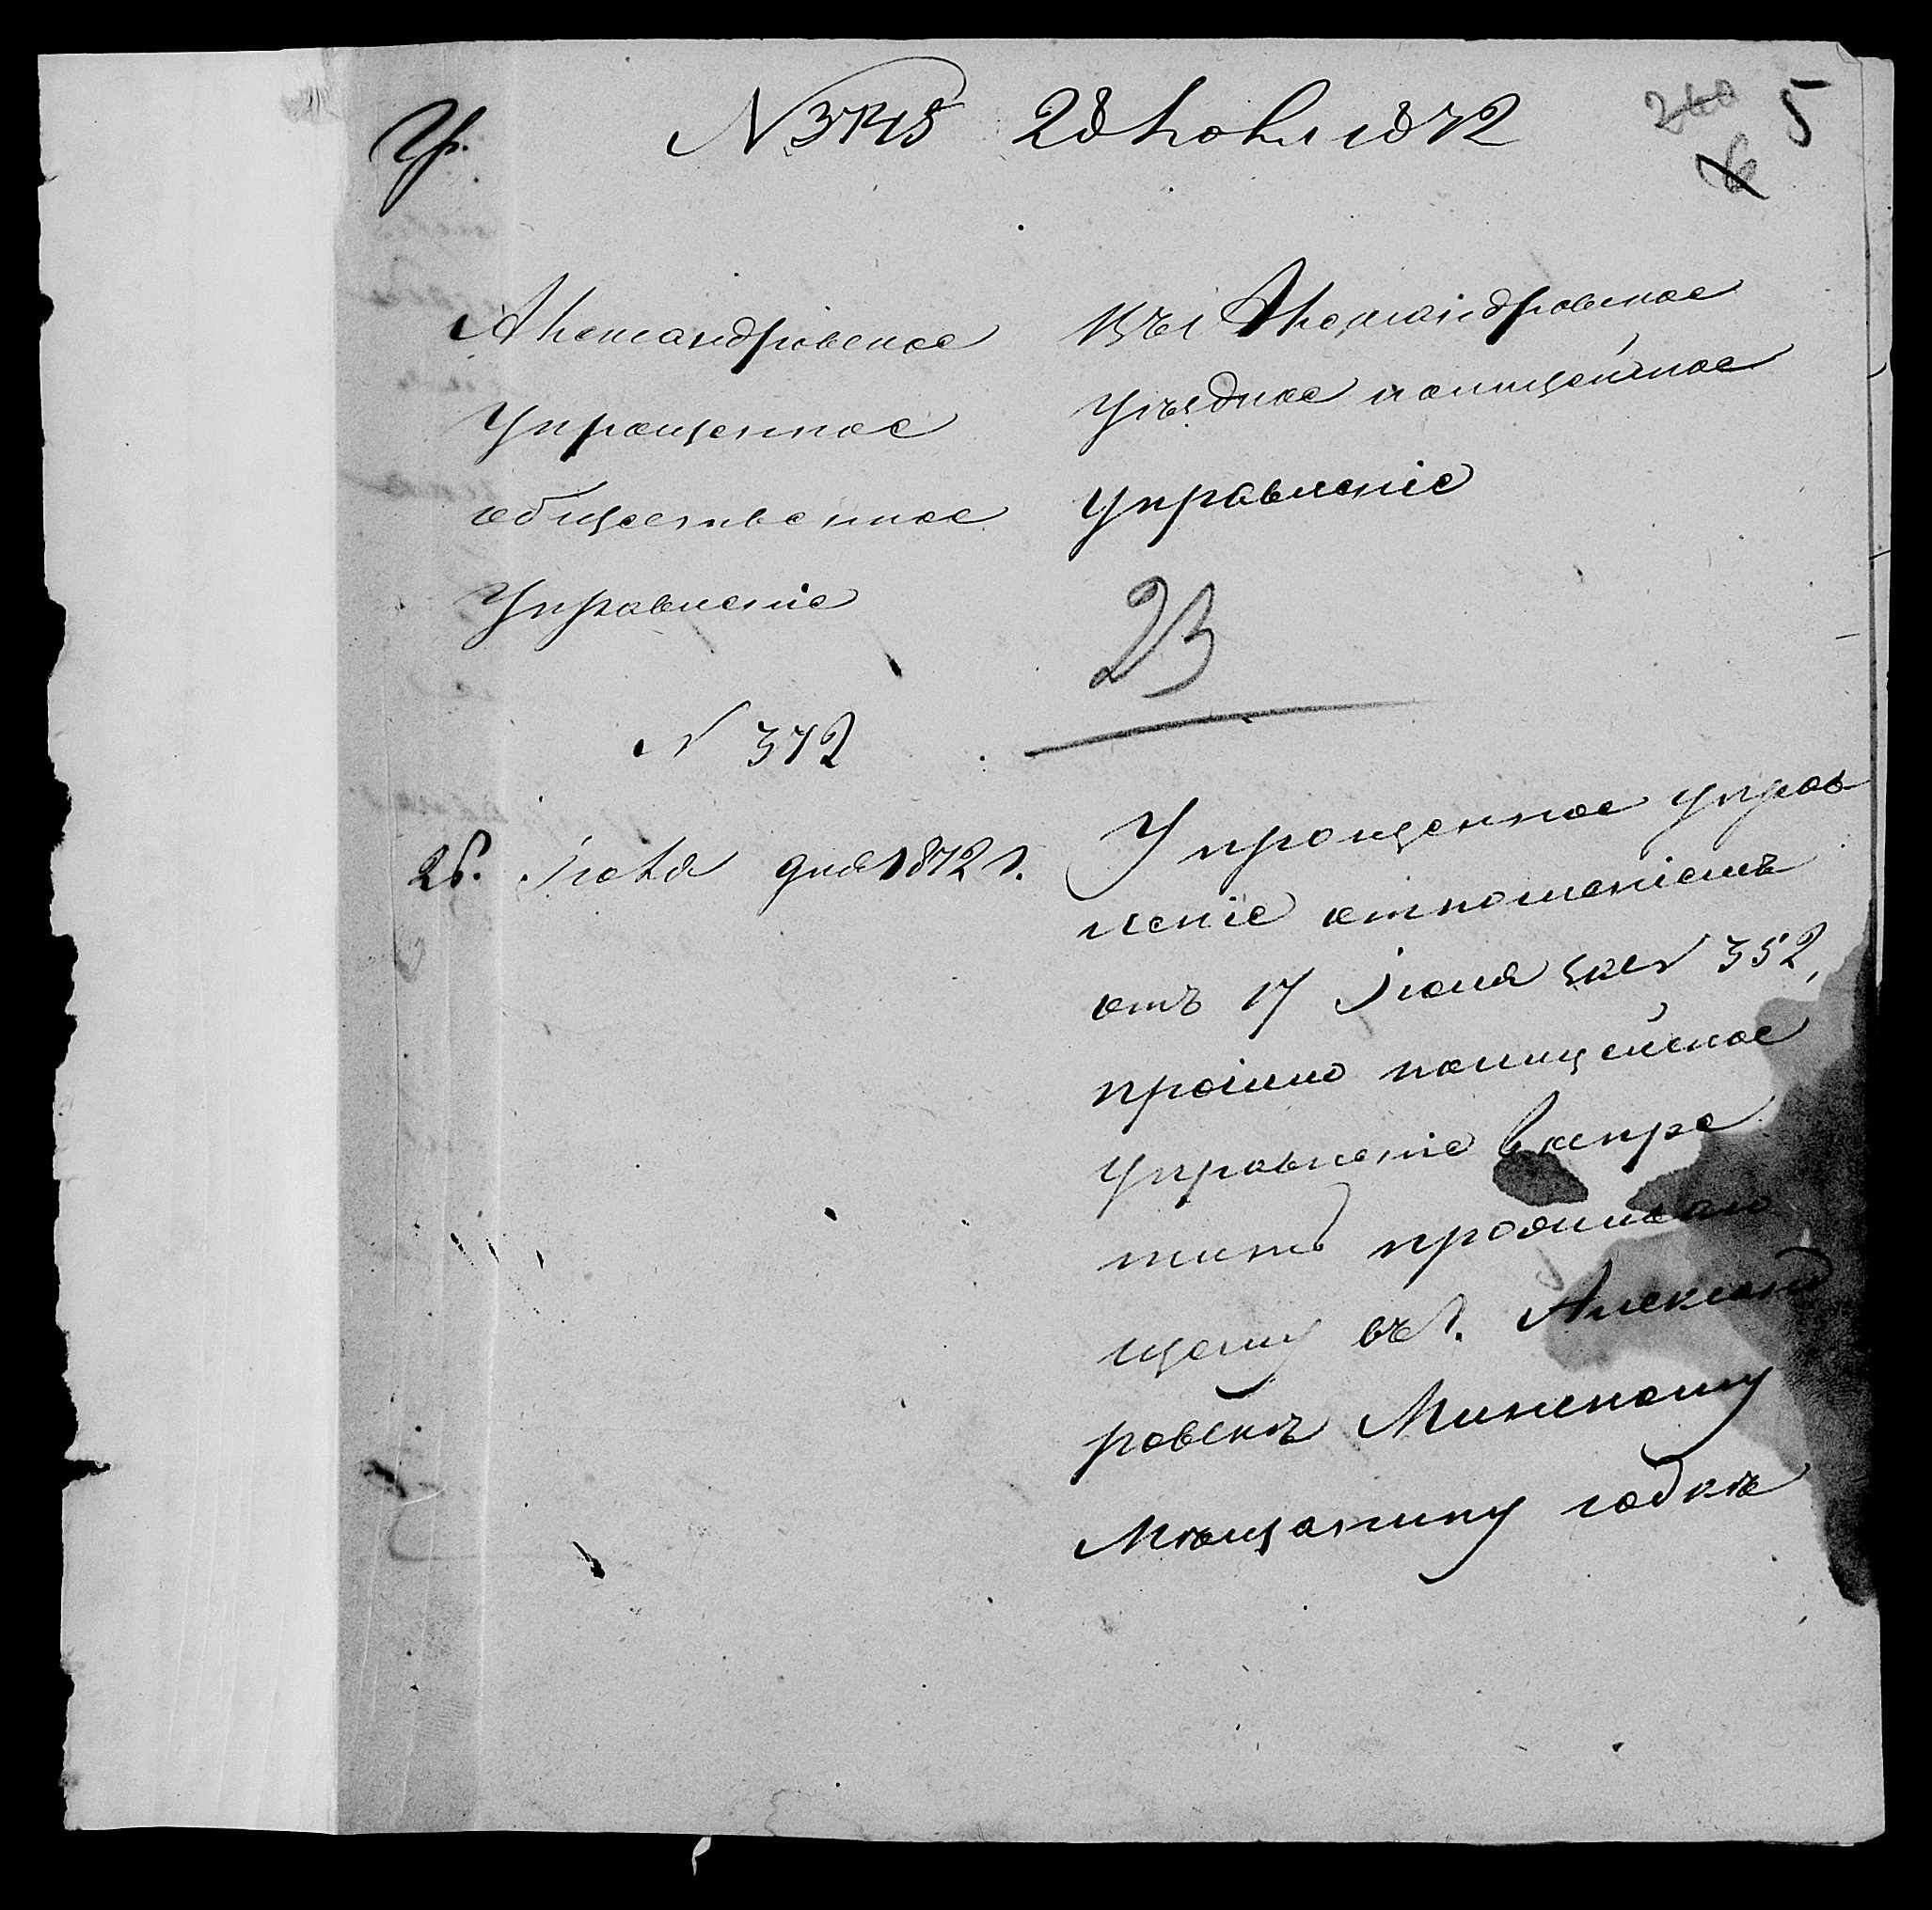 № 3745 28 Іюля 1872
240 5
6
Александровское
Упрощенное
общественное
Управленіе
№ 372
26. Іюля дня 1872 г.
Въ Александровское
Уѣздное полицейское
Управленіе
23
Упрощенное управ
леніе отношеніемъ
отъ 17 Іюля за № 352,
просило полицейское
управленіе воспре
тить проживаю
щему въ г. Александ
ровскѣ Минскому
Мѣщанину